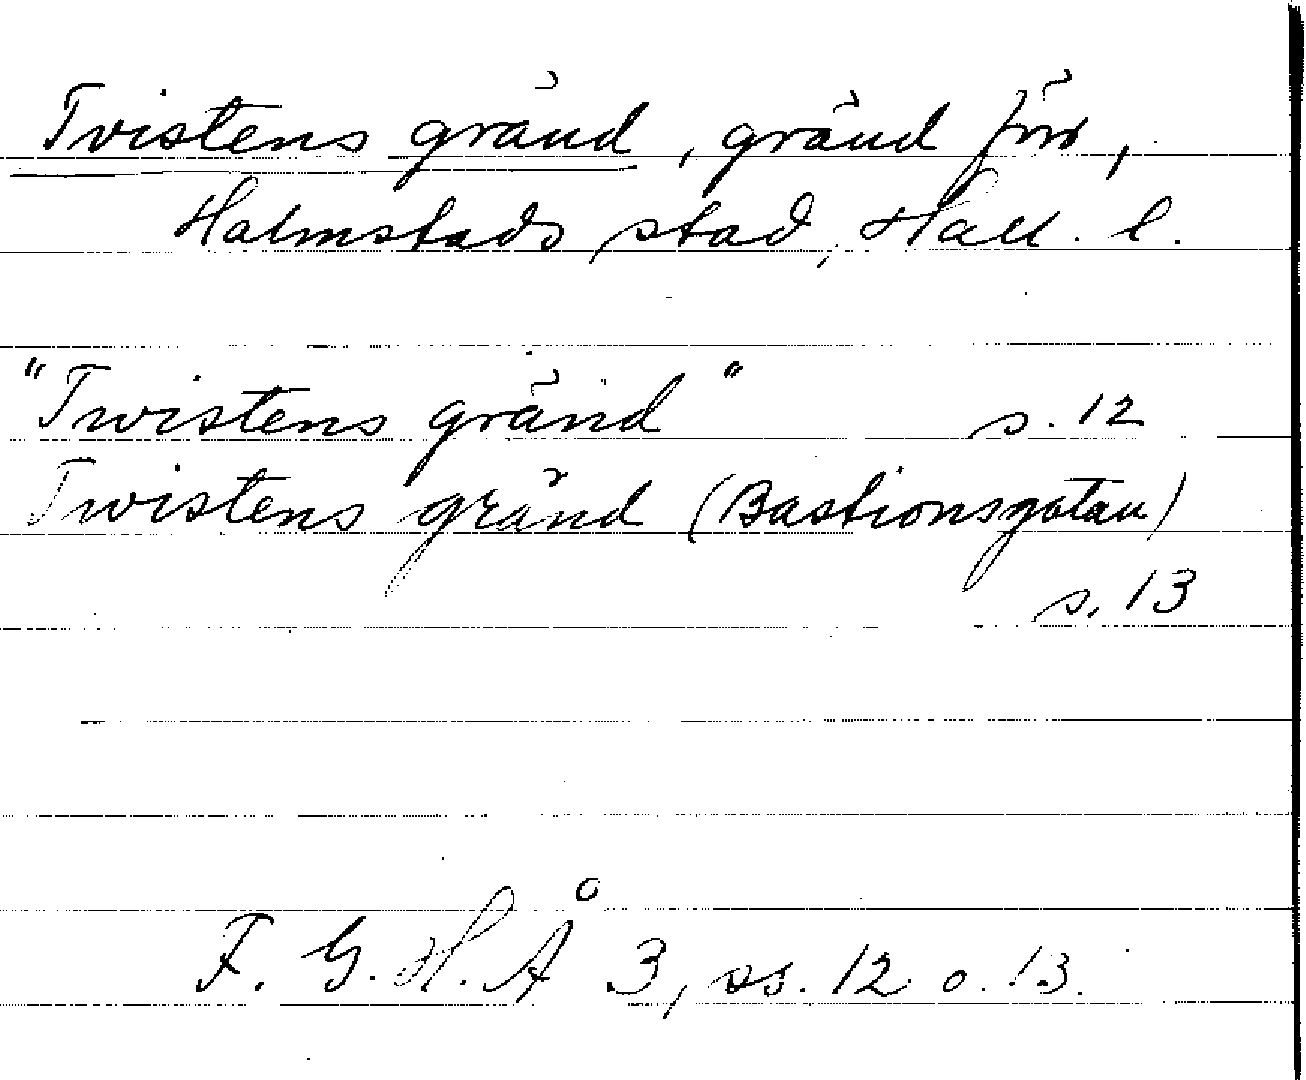 Tvistens gränd, gränd förr,
Halmstads stad, Hall. l.
"Twistens gränd" s. 12
Twistens gränd (Bastionsgatan)
s. 13
F. G. H. Å 3, ss. 12 o. 13.